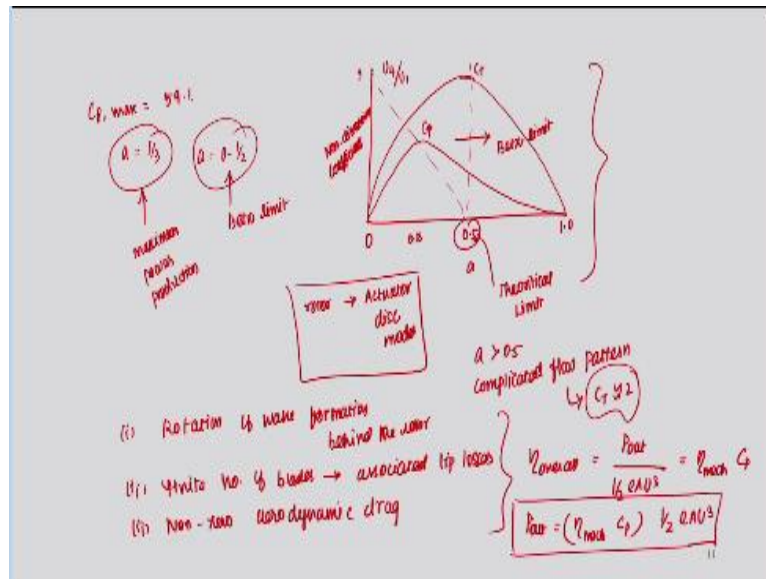 Cp, max = 59.1.
a = 1/3
a = 0-1/2
maximum
power
production
Betz limit
1
U4/U1
CT
Cp
→ Betz limit
Non-dimension
coefficients
0
0.3
0.5
1.0
a
Theoritical
Limit
rotor → Actuator
disc
model
a > 0.5
Complicated flow pattern
↳ CT ≈ 2
(i) Rotation of wake formation
behind the rotor
(ii) Finite no. of blades → associated tip losses
(iii) Non-zero aerodynamic drag
ηoverall = Pout / ½ ρAU³ = ηmech Cp
Pout = (ηmech Cp) ½ ρAU³
11